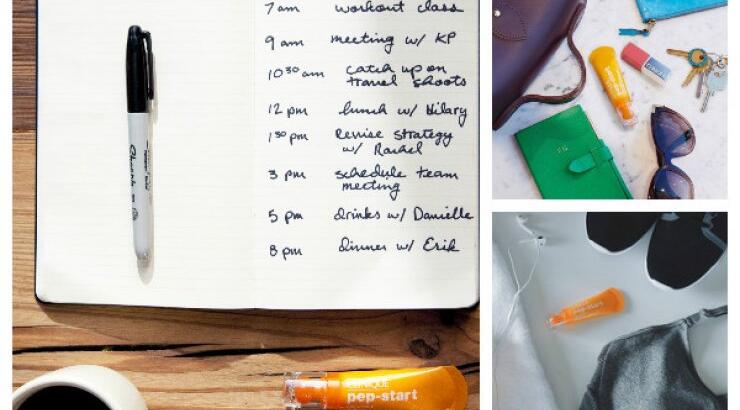 7 am workout class
9 am meeting w/ KP
10:30 am catch up on
travel shoots
12 pm lunch w/ Hilary
1:30 pm Revise strategy
w/ Rachel
3 pm schedule team
meeting
5 pm drinks w/ Danielle
8 pm dinner w/ Erik
Sharpie
CLINIQUE
pep-start
pep-start